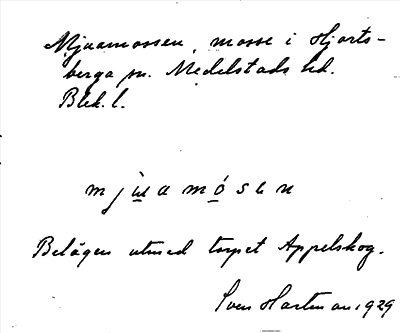 Mjuamossen, mosse i Hjorts-
berga sn. Medelstads hd.
Blek. l.
m j u a m ó s e n
Belägen utmed torpet Appelskog.
Sven Hartman 1929